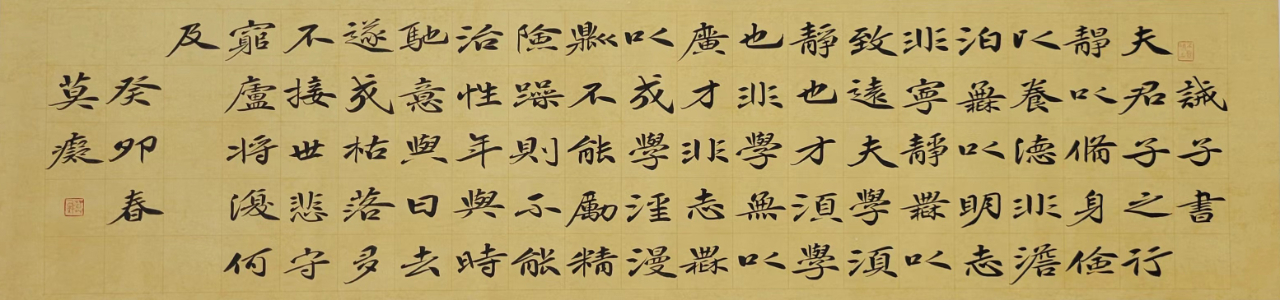 誡子書
夫君子之行
靜以脩身儉
以養德非澹
泊無以明志
非寧靜無以
致遠夫學須
靜也才須學
也非學無以
廣才非志無
以成學淫漫
則不能勵精
險躁則不能
治性年與時
馳意與日去
遂成枯落多
不接世悲守
窮廬將復何
及
癸卯春
莫癡